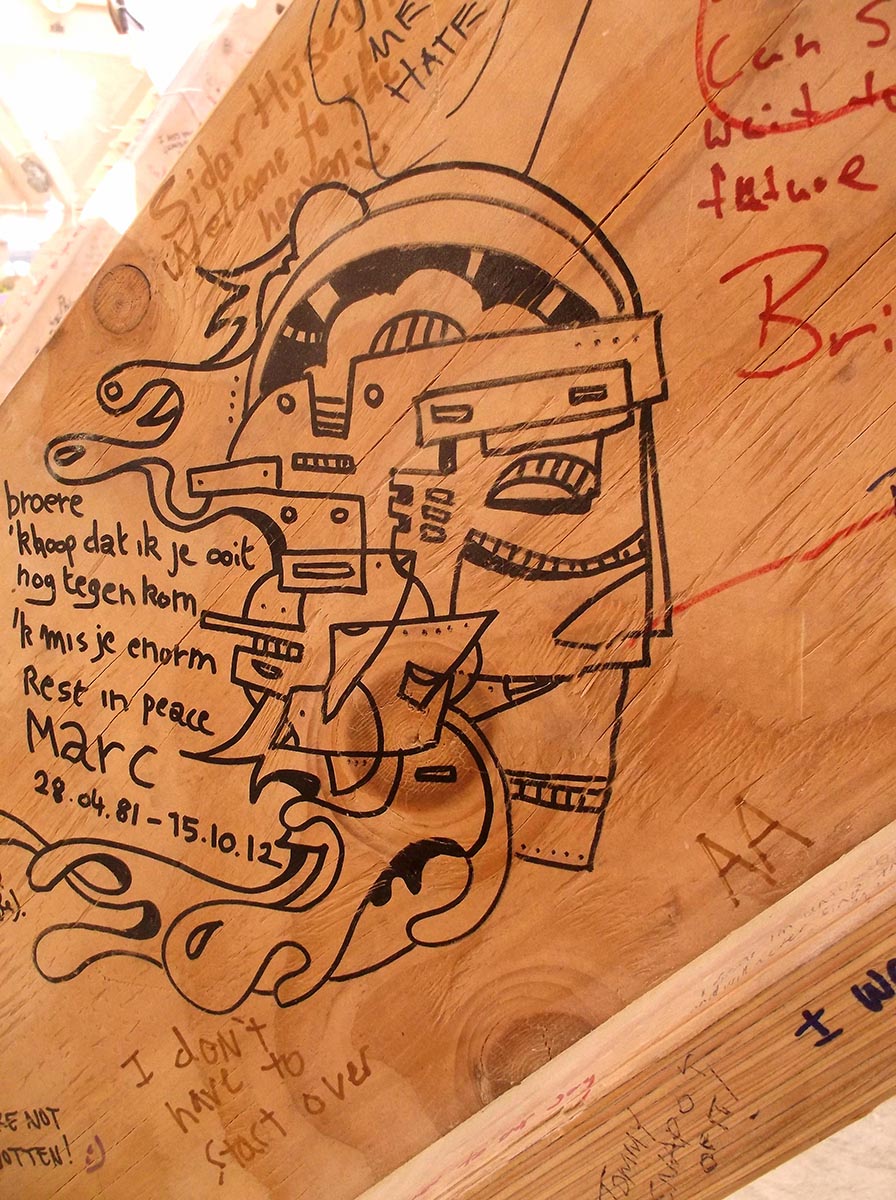 ME
HATE
Sidar Huseyin
Welcome to the
heaven :)
Can S
wait
future
Bri
broere
'khoop dat ik je ooit
nog tegen kom
'k mis je enorm
Rest in peace
Marc
28.04.81-15.10.12
AA
I don't
have to
start over
RE NOT
OTTEN!
I